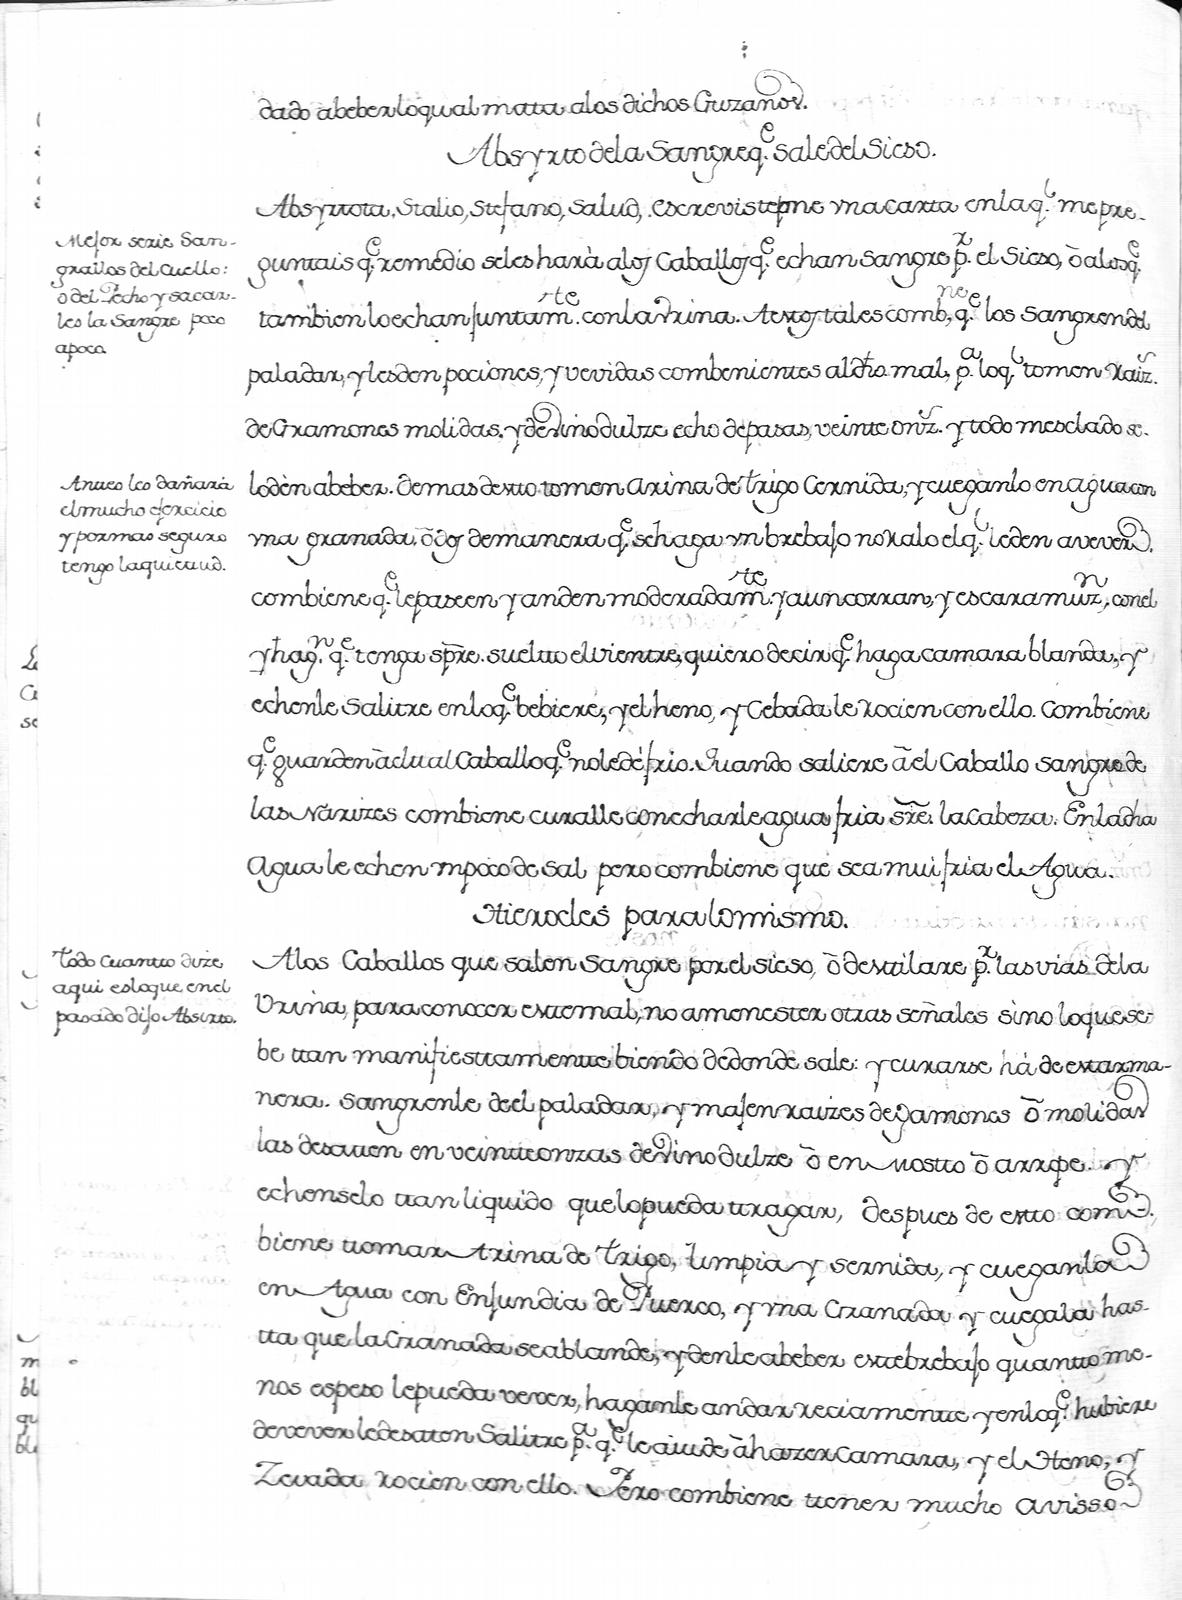 dado abeber loqual mata alos dichos Guzanos.
Absyrto dela Sangre q.e sale del Sieso.
Absyrto ta, Stalio, Stefano, Salud, escrevisteme vna carta enla q.l mepre-
guntais q.e remedio seles hará alos Caballos q.e echan Sangre p.r el Sieso, ò alos q.e
tambien lo echan juntam.te con la Vrina. Aestos tales comb.ne q.e los Sangren del
paladar, y lesden pociones, y vevidas combenientes aldho mal, p.a lo q.l tomen Raiz.s
de Gramones molidas, y de Vino dulze echo de pasas, veinte onz.s y todo mesclado se-
lo dèn abeber. demas desto tomen Arina de trigo Cernida, y cueganlo en agua con
vna granada, ò dos de manera q.e sehaga vn brebajo no ralo el q.l leden avever,
combiene q.e lepaseen y anden moderadam.te y aun corran, y escaramuz.n con el
y hag.n q.e tenga spre. suelto el vientre, quiero decir q.e haga camara blanda, y
echenle Salitre enlo q.e bebiere, y el heno, y Cebada le rocien con ello. Combiene
q.e guarden à el tal Caballo q.e nole dè frio. Quando saliere à el Caballo sangre de
las Narizes combiene curalle con echarle agua fria sre. la Cabeza. En la dha
Agua le echen vn poco de sal pero combiene que sea mui fria el Agua.
Hierocles para lo mismo.
Alos Caballos que salen Sangre por el sieso, ò destilare p.r las vias dela
Vrina, para conocer estemal, no a menester otras señales sino loque se-
be tan manifiestamente biendo dedonde sale: y curarse hà de esta rma-
nera. Sangrenle de el paladar, y majen raizes de gamones ò molidas
las desaten en veinte onzas de Vino dulze ò en mosto ò arrope. y
echenselo tan liquido que lo pueda tragar, despues de esto com-
biene tomar Arina de Trigo, limpia y sernida, y cueganla
en Agua con Enjundia de Puerco, y vna Granada y cuegala has-
ta que la Granada se ablande, y denle abeber este brebajo quanto me-
nos espeso lepueda vever, haganle andar reciamente y enlo q.e hubiere
de vever le desaten Salitre p.a q.e le aiude à hazer Camara, y el Heno, y
Zevada rocien con ello. Pero combiene tener mucho avisso
Mejor serie San-
grailos del Cuello:
o del Pecho y sacar-
les la Sangre poco
apoco.
Antes les dañarà
el mucho exercicio
y por mas seguro
tengo la quietud.
Todo cuanto dize
aqui es loque en el
pasado dijo Absirto.